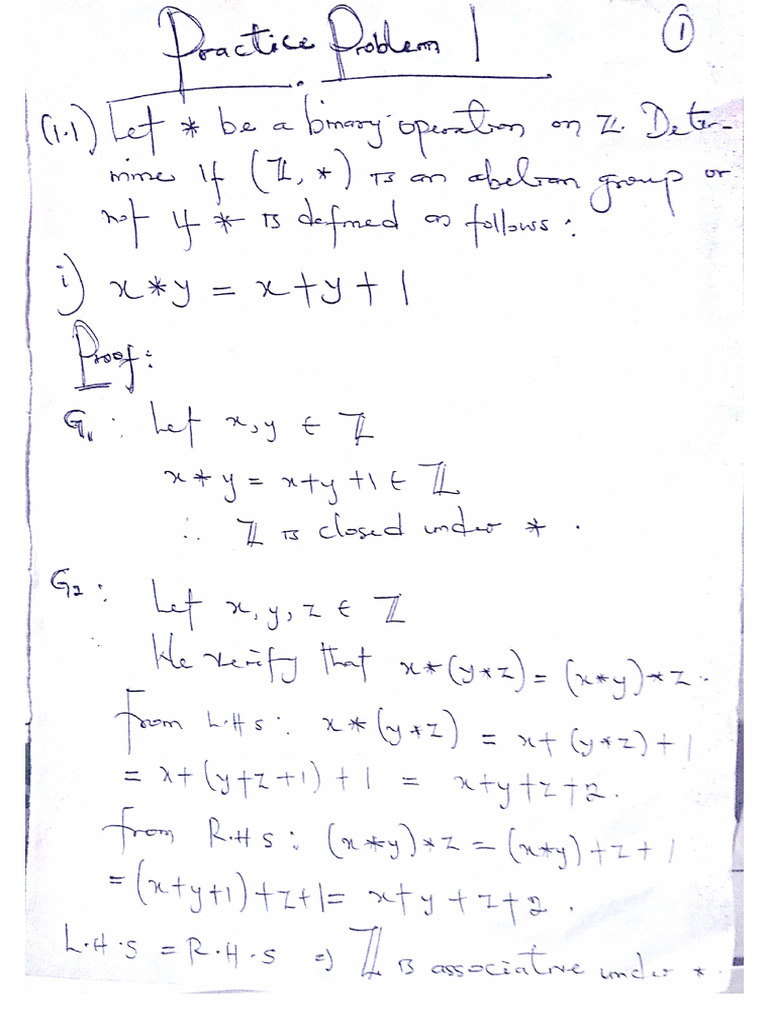 Practice Problem 1 ①
(1.1) Let * be a binary operation on ℤ. Deter-
mine if (ℤ, *) is an abelian group or
not if * is defined as follows:
i) x*y = x+y+1
Proof:
G₁: Let x, y ∈ ℤ
x*y = x+y+1 ∈ ℤ
∴ ℤ is closed under *.
G₂: Let x, y, z ∈ ℤ
We verify that x*(y*z) = (x*y)*z.
From L.H.S: x*(y*z) = x+(y*z)+1
= x+(y+z+1)+1 = x+y+z+2.
from R.H.S: (x*y)*z = (x*y)+z+1
= (x+y+1)+z+1 = x+y+z+2.
L.H.S = R.H.S ⇒ ℤ is associative under *.